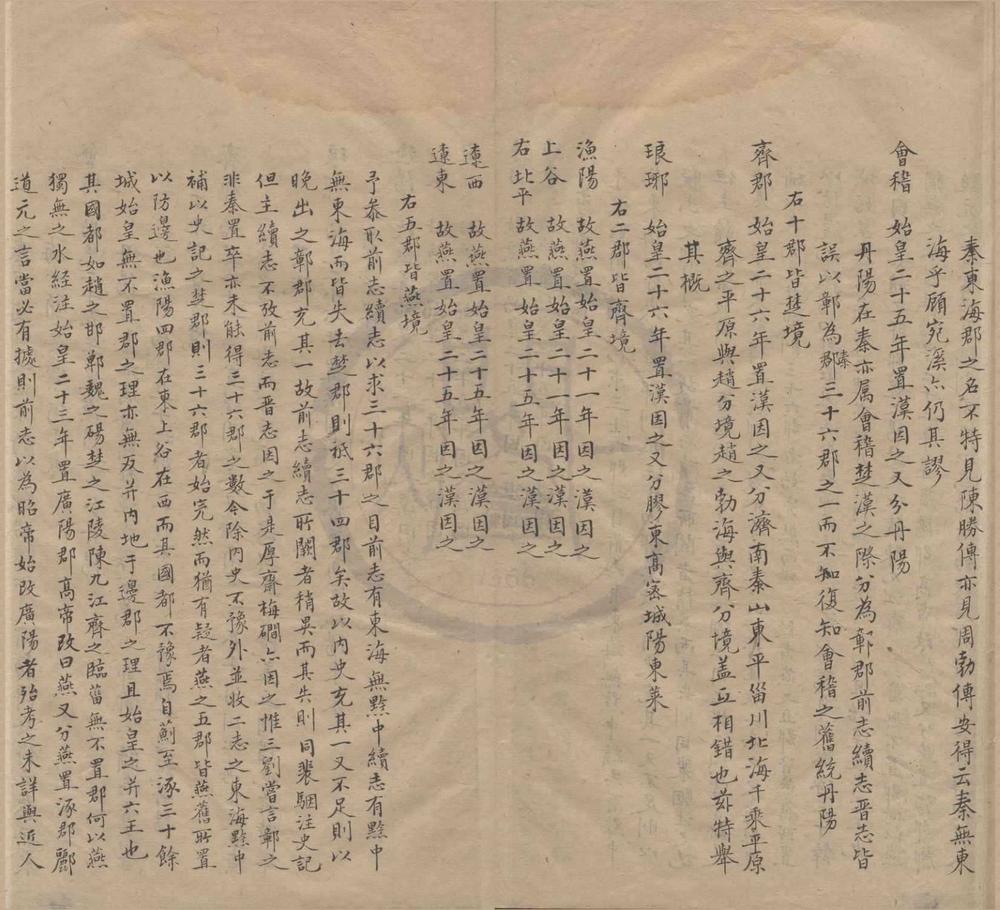 秦東海郡之名不特見陳勝傳亦見周勃傳安得云秦無東
海乎顧宛溪亦仍其謬
會稽　始皇二十五年置漢因之又分丹陽
丹陽在秦亦属會稽楚漢之際分為鄣郡前志續志晋志皆
誤以鄣為秦郡三十六郡之一而不知復知會稽之舊統丹陽
右十郡皆楚境
齊郡　始皇二十六年置漢因之又分濟南泰山東平甾川北海千乘平原
齊之平原與趙分境趙之勃海與齊分境盖互相錯也兹特舉
其概
琅琊　始皇二十六年置漢因之又分膠東髙密城陽東萊
右二郡皆齊境
漁陽　故燕置始皇二十一年因之漢因之
上谷　故燕置始皇二十一年因之漢因之
右北平　故燕置始皇二十五年因之漢因之
遼西　故燕置始皇二十五年因之漢因之
遼東　故燕置始皇二十五年因之漢因之
右五郡皆燕境
予叅取前志續志以求三十六郡之目前志有東海無黔中續志有黔中
無東海而皆失去楚郡則祗三十四郡矣故以内史充其一又不足則以
晚出之鄣郡充其一故前志續志所闕者稍異而其失則同裴駰注史記
但主續志不攷前志而晋志因之于是厚齋梅磵亦因之惟三劉嘗言鄣之
非秦置卒亦未能得三十六郡之數今除内史不豫外並收二志之東海黔中
補以史記之楚郡則三十六郡者始完然而猶有疑者燕之五郡皆燕舊所置
以防邊也漁陽四郡在東上谷在西而其國都不豫焉自薊至涿三十餘
城始皇無不置郡之理亦無反并内地于邊郡之理且始皇之并六王也
其國都如趙之邯鄲魏之碭楚之江陵陳九江齊之臨菑無不置郡何以燕
獨無之水經注始皇二十三年置廣陽郡髙帝改曰燕又分燕置涿郡酈
道元之言當必有據則前志以為昭帝始改廣陽者殆考之未詳與近人